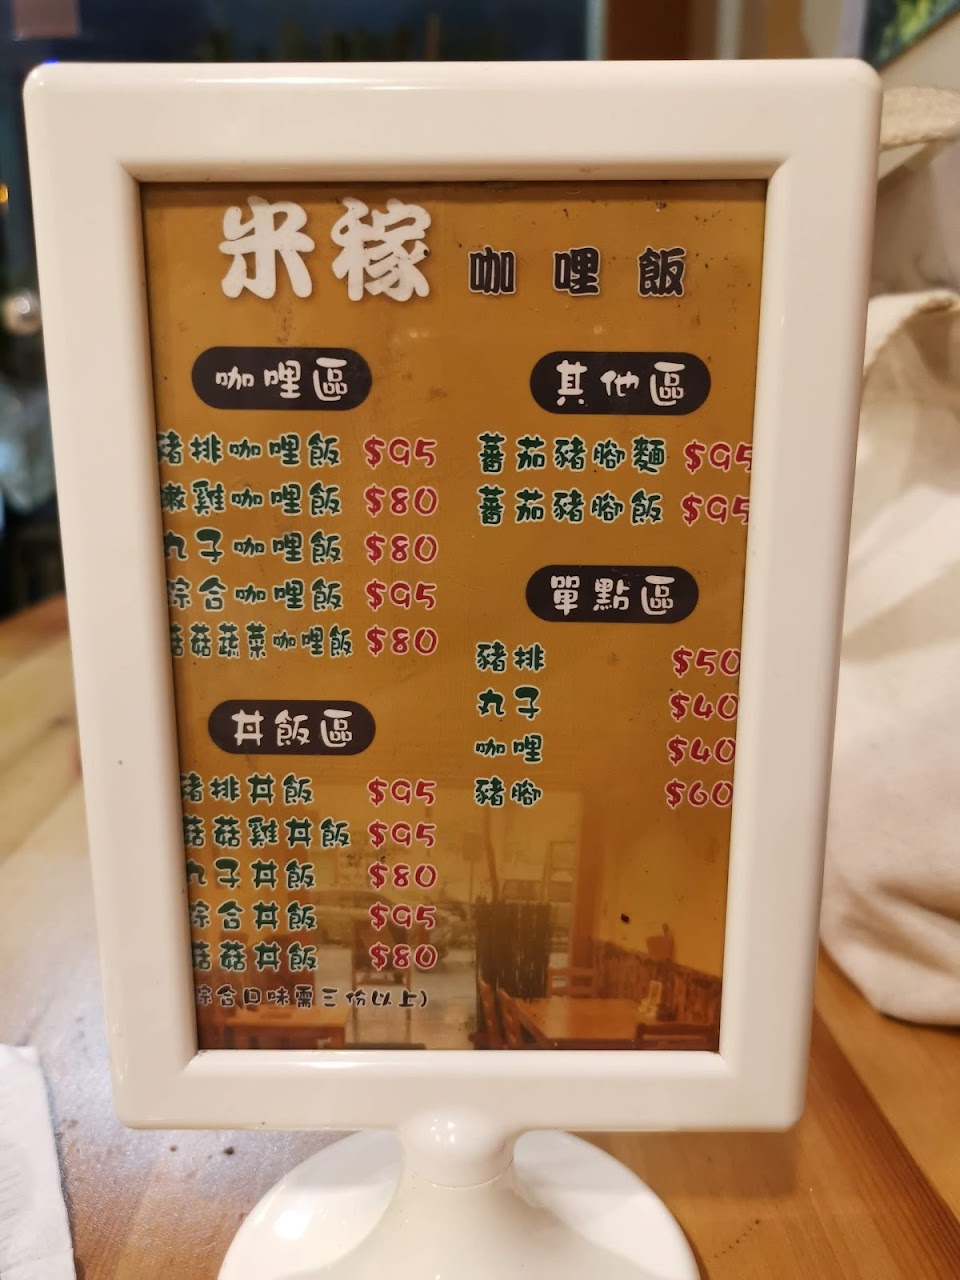 米稼 咖哩飯
咖哩區
豬排咖哩飯 $95
嫩雞咖哩飯 $80
丸子咖哩飯 $80
綜合咖哩飯 $95
菇菇蔬菜咖哩飯 $80
丼飯區
豬排丼飯 $95
菇菇雞丼飯 $95
丸子丼飯 $80
綜合丼飯 $95
菇菇丼飯 $80
綜合口味需三份以上)
其他區
蕃茄豬腳麵 $95
蕃茄豬腳飯 $95
單點區
豬排 $50
丸子 $40
咖哩 $40
豬腳 $60